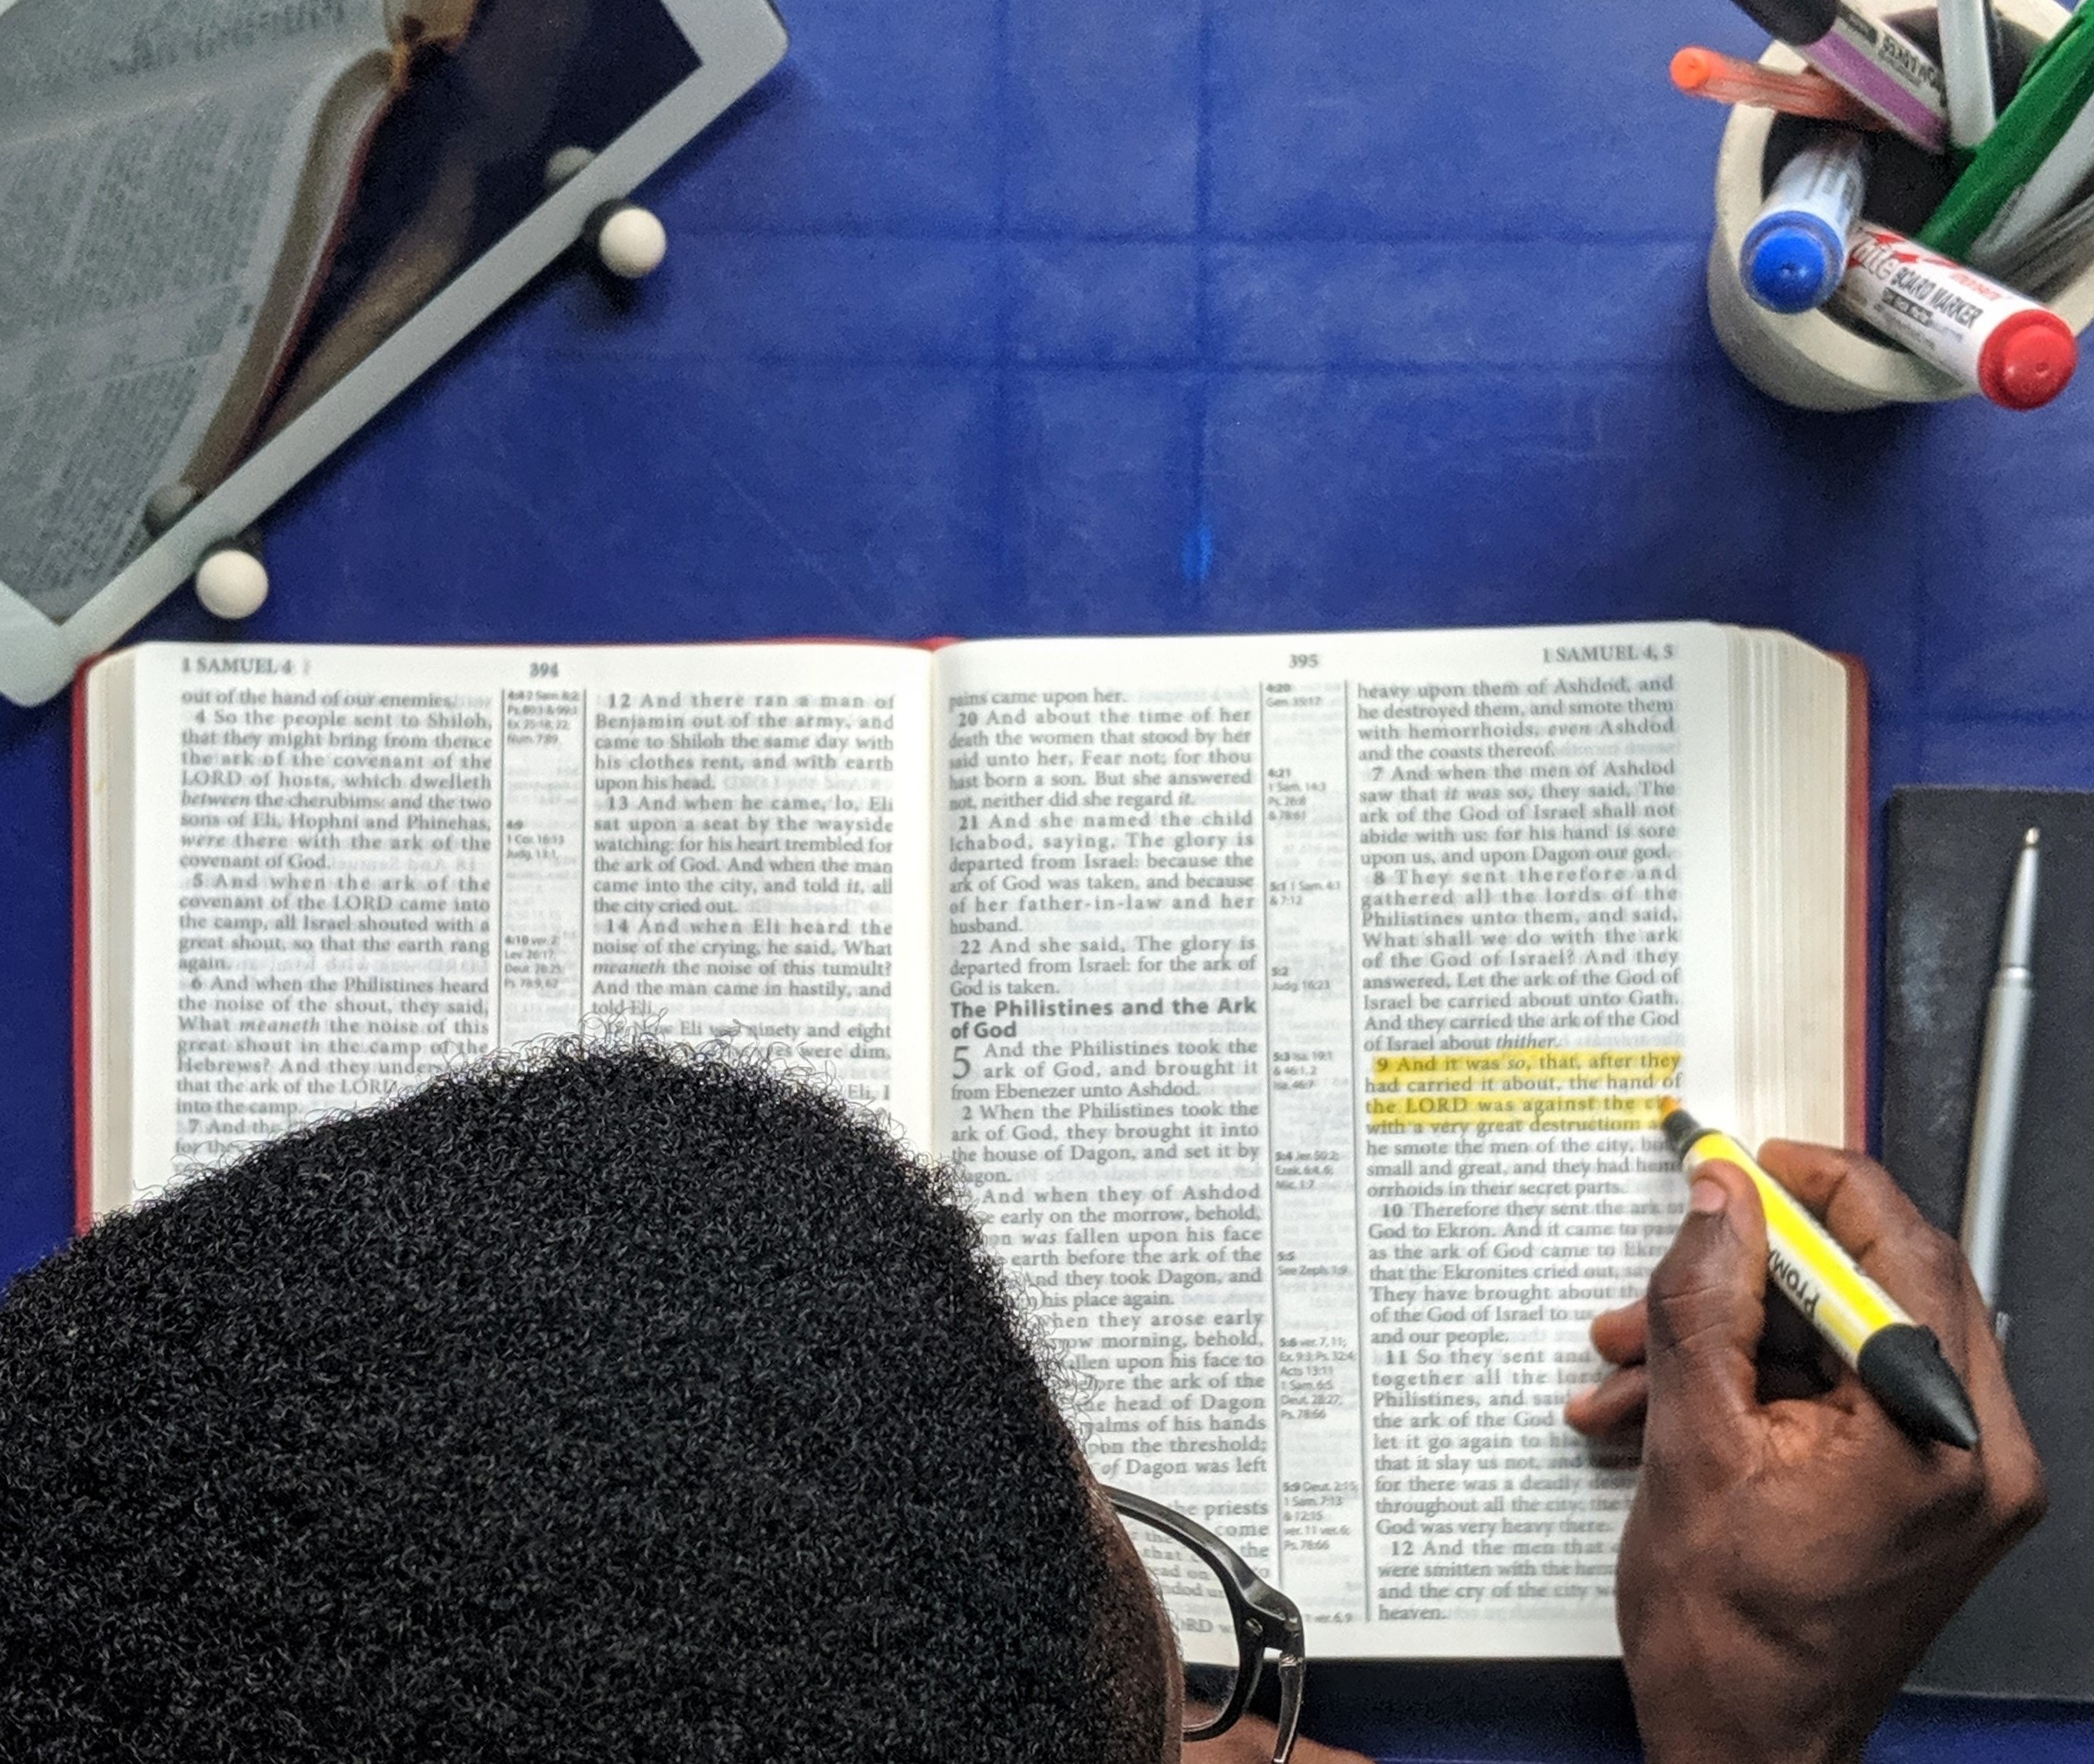 1 SAMUEL 4
394
out of the hand of our enemies.
4 So the people sent to Shiloh,
that they might bring from thence
the ark of the covenant of the
LORD of hosts, which dwelleth
between the cherubims: and the two
sons of Eli, Hophni and Phinehas,
were there with the ark of the
covenant of God.
5 And when the ark of the
covenant of the LORD came into
the camp, all Israel shouted with a
great shout, so that the earth rang
again.
6 And when the Philistines heard
the noise of the shout, they said,
What meaneth the noise of this
great shout in the camp of the
Hebrews? And they
that the ark of the LORD
into the camp.
7 And the
for the
4:9
1 Cor. 16:13
Judg. 13:1
4:10 ver. 2
Lev. 26:17
Deut. 28:25
Ps. 78:9, 62
12 And there ran a man of
Benjamin out of the army, and
came to Shiloh the same day with
his clothes rent, and with earth
upon his head.
13 And when he came, lo, Eli
sat upon a seat by the wayside
watching: for his heart trembled for
the ark of God. And when the man
came into the city, and told it, all
the city cried out.
14 And when Eli heard the
noise of the crying, he said, What
meaneth the noise of this tumult?
And the man came in hastily, and
told Eli.
Eli was ninety and eight
were dim,
Eli, I
395
1 SAMUEL 4, 5
pains came upon her.
20 And about the time of her
death the women that stood by her
said unto her, Fear not; for thou
hast born a son. But she answered
not, neither did she regard it.
21 And she named the child
Ichabod, saying, The glory is
departed from Israel: because the
ark of God was taken, and because
of her father-in-law and her
husband.
22 And she said, The glory is
departed from Israel: for the ark of
God is taken.
The Philistines and the Ark
of God
5 And the Philistines took the
ark of God, and brought it
from Ebenezer unto Ashdod.
2 When the Philistines took the
ark of God, they brought it into
the house of Dagon, and set it by
agon.
And when they of Ashdod
early on the morrow, behold,
was fallen upon his face
earth before the ark of the
And they took Dagon, and
his place again.
when they arose early
morning, behold,
upon his face to
the ark of the
head of Dagon
palms of his hands
the threshold;
of Dagon was left
priests
come
the
4:20
Gen. 35:17
4:21
1 Sam. 14:3
Ps. 26:8
& 78:61
5:1 1 Sam. 4:1
& 7:12
5:2
Judg. 16:23
5:3 Isa. 19:1
& 46:1, 2
Isa. 46:7
5:4 Jer. 50:2;
Ezek. 6:4, 6;
Mic. 1:7
5:5
See Zeph. 1:9
5:6 ver. 7, 11;
Ex. 9:3; Ps. 32:4
Acts 13:11
1 Sam. 6:5
Deut. 28:27;
Ps. 78:66
5:9 Deut. 2:15;
1 Sam. 7:13
& 12:15
ver. 11 ver. 6;
Ps. 78:66
heavy upon them of Ashdod, and
he destroyed them, and smote them
with hemorrhoids, even Ashdod
and the coasts thereof.
7 And when the men of Ashdod
saw that it was so, they said, The
ark of the God of Israel shall not
abide with us: for his hand is sore
upon us, and upon Dagon our god.
8 They sent therefore and
gathered all the lords of the
Philistines unto them, and said,
What shall we do with the ark
of the God of Israel? And they
answered, Let the ark of the God of
Israel be carried about unto Gath.
And they carried the ark of the God
of Israel about thither.
9 And it was so, that, after they
had carried it about, the hand of
the LORD was against the
with a very great destruction:
he smote the men of the city,
small and great, and they had hem
orrhoids in their secret parts.
10 Therefore they sent the ark
God to Ekron. And it came to pass
as the ark of God came to
that the Ekronites cried out,
They have brought about
of the God of Israel to us
and our people.
11 So they sent and
together all the lords
Philistines, and said
the ark of the God
let it go again to his
that it slay us not, and
for there was a deadly
throughout all the city; the
God was very heavy there.
12 And the men that
were smitten with the
and the cry of the city
heaven.
White BOARD MARKER